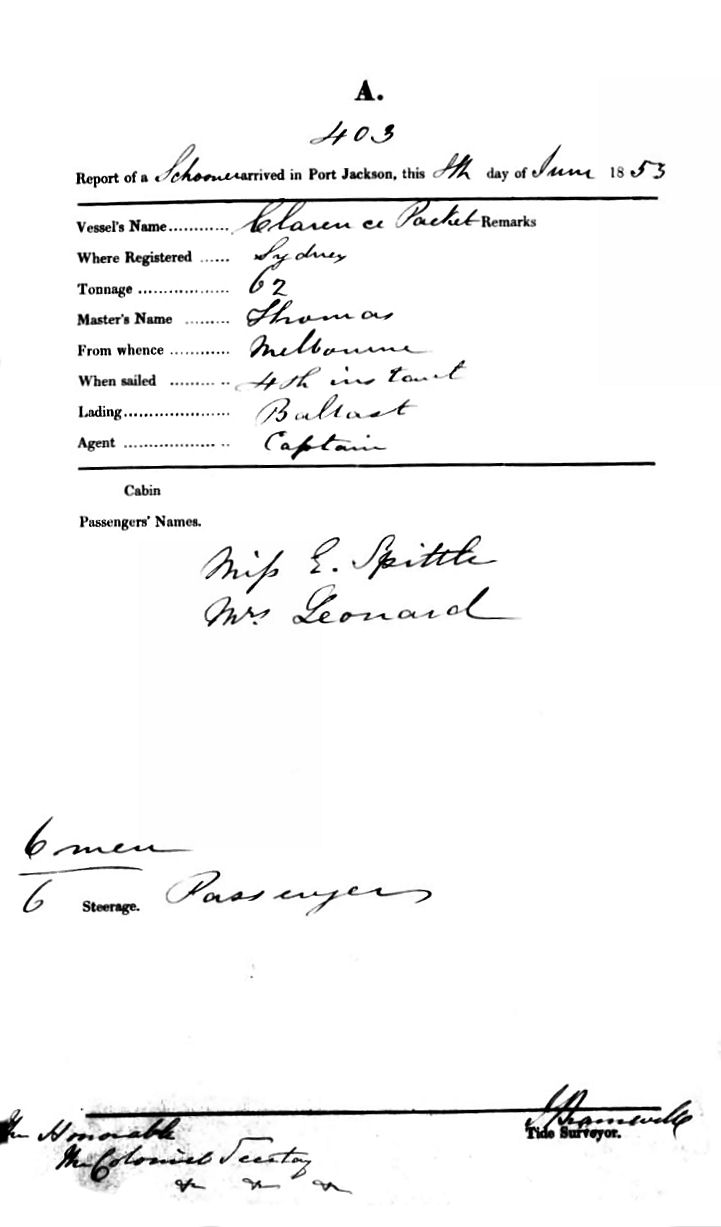 A.
403
Report of a Schooner arrived in Port Jackson, this 8th day of June 1853
Vessel's Name............ Clarence Packet Remarks
Where Registered ...... Sydney
Tonnage .................. 62
Master's Name ......... Thomas
From whence ............ Melbourne
When sailed ............ 4th instant
Lading..................... Ballast
Agent ...................... Captain
Cabin
Passengers' Names.
Miss E. Spittle
Mrs. Leonard
6 men
6 Steerage. Passengers
Tide Surveyor.
The Honorable
The Colonial Secretary